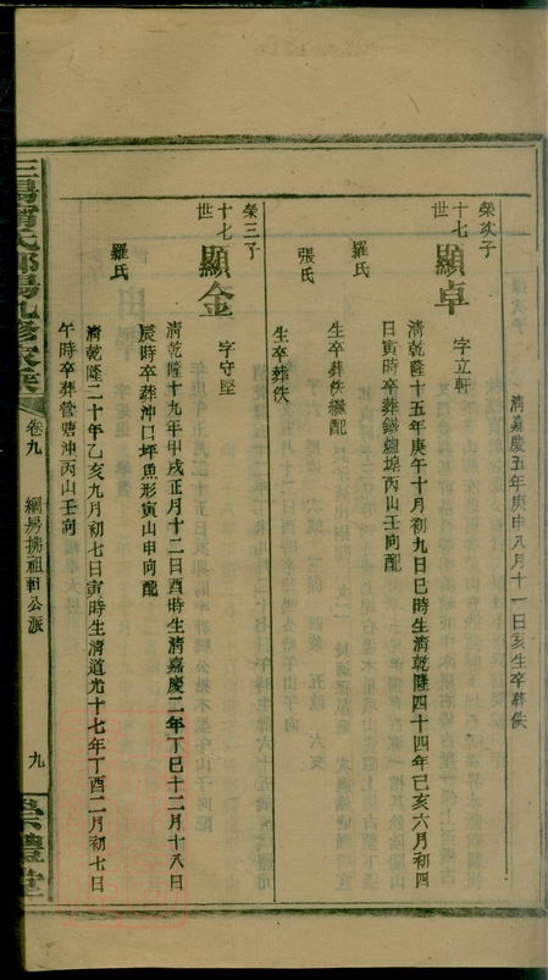 清嘉慶五年庚申八月十一日亥生卒葬佚
榮次子
十七世
顯卓
字立軒
清乾隆十五年庚午十月初九日巳時生清乾隆四十四年己亥六月初四
日寅時卒葬鐵爐埦丙山壬向配
羅氏
生卒葬佚繼配
張氏
生卒葬佚
榮三子
十七世
顯金
字守堅
清乾隆十九年甲戌正月十二日酉時生清嘉慶二年丁巳十二月十八日
辰時卒葬沖口坪魚形寅山申向配
羅氏
清乾隆二十年乙亥九月初七日寅時生清道光十七年丁酉二月初七日
午時卒葬管塘沖丙山壬向
卷九
綱房携祖軒公派
九
崇禮堂